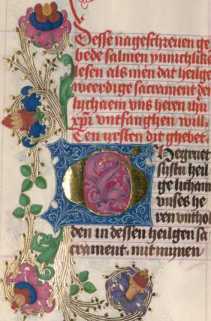 Desse nageschreuen ge
bede salmen ynnichlikē
lesen als men dat heilge
weerdige sacrament des
lychaem vns heren ihū
xpī vntfanghen will.
Een ersten dit ghebet.
Begruet
sistu heil
ge licham
vnses he
ren vntho
den in dessen heilgen sa
crament. mit mynen